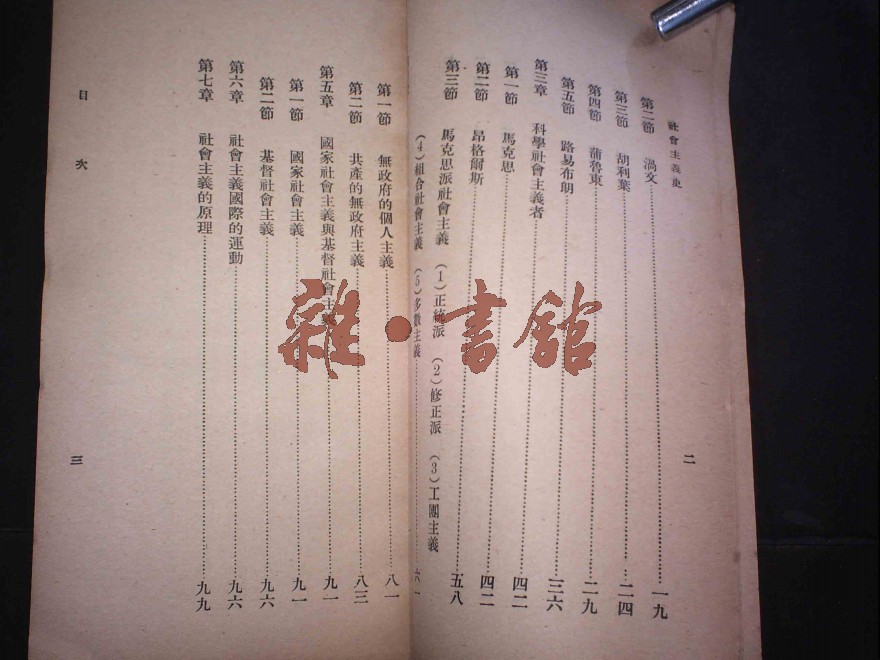 社會主義史
第二節　渦文……一九
第三節　胡利葉……二四
第四節　蒲魯東……二九
第五節　路易布朗……三六
第三章　科學社會主義者……四二
第一節　馬克思……四二
第二節　昂格爾斯……五八
第三節　馬克思派社會主義　(1)正統派　(2)修正派　(3)工團主義
(4)組合社會主義　(5)多數主義……六一
二
第一節　無政府的個人主義……八一
第二節　共產的無政府主義……八三
第五章　國家社會主義與基督社會主義……九一
第一節　國家社會主義……九一
第二節　基督社會主義……九六
第六章　社會主義國際的運動……九六
第七章　社會主義的原理……九九
目次
三
雜·書舘